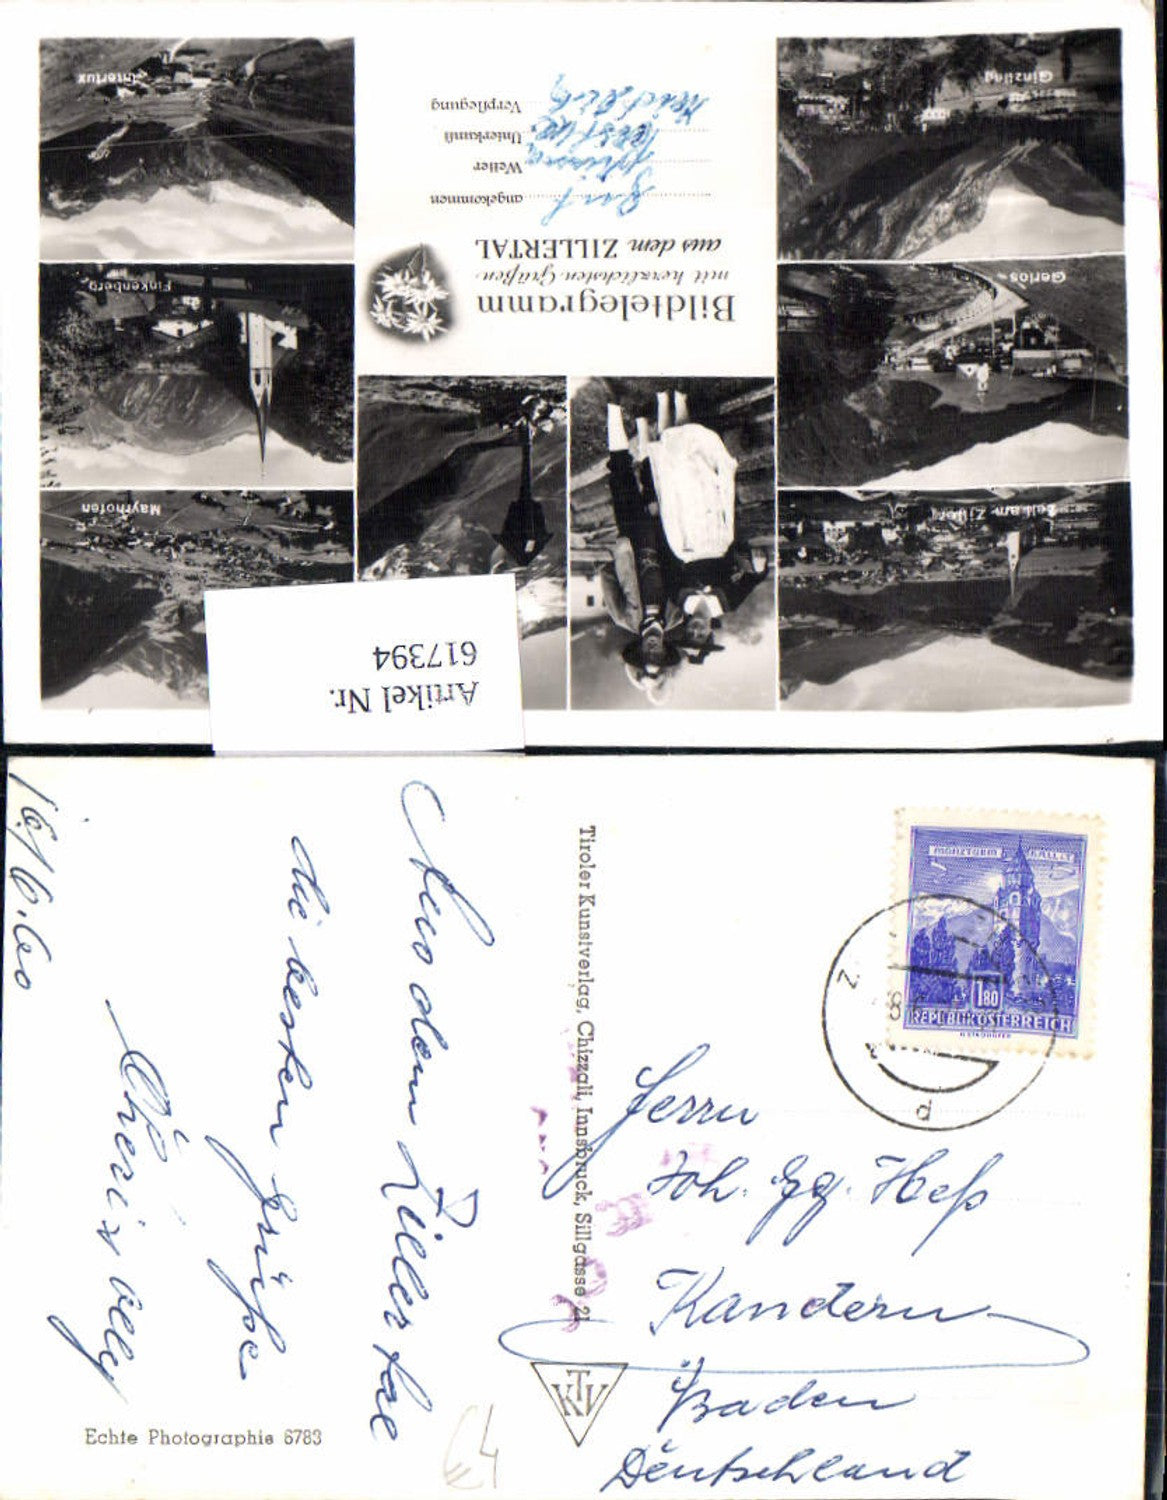 Bildtelegramm
mit herzlichsten Grüßen
aus dem ZILLERTAL
angekommen Gut
Wetter prima
Unterkunft
Verpflegung
Ginzling
Gerlos
Zell am Ziller
Hintertux
Finkenberg
Mayrhofen
Artikel Nr.
617394
16/6.60
Aus dem Zillertal
die besten Grüße
Tiroler Kunstverlag, Chizzali, Innsbruck, Sillgasse 21
MÜNZTURM HALL I.T.
1.80
REPUBLIK ÖSTERREICH
Herrn
Joh. Gg. Heß
Kandern
Baden
Deutschland
KTV
Echte Photographie 6783